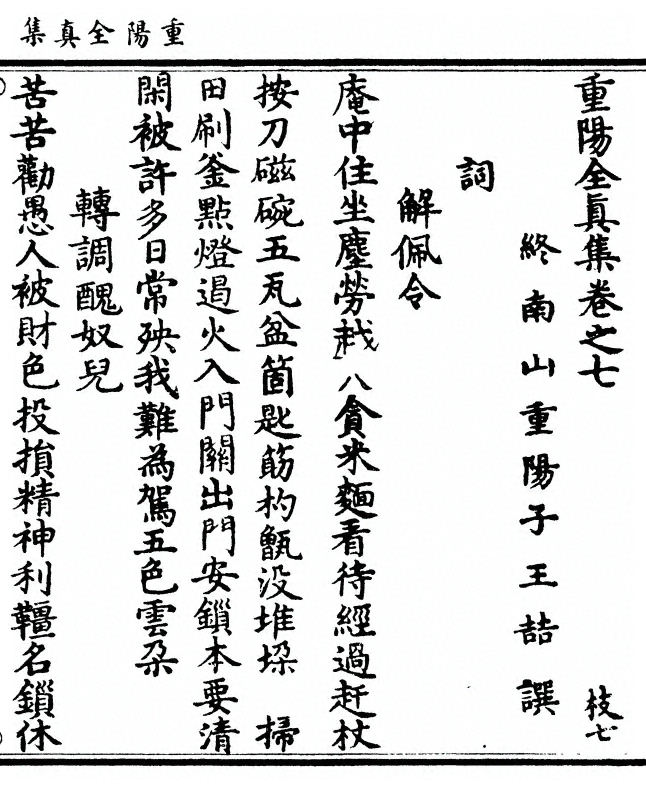 重陽全真集
重陽全眞集卷之七 枝七
終南山重陽子王喆譔
詞
解佩令
庵中住坐塵勞越八貪米麵看待經過赶杖
按刀磁碗五瓦盆箇匙筯杓甑没堆垛 掃
田刷釜點燈遏火入門關出門安鎖本要清
閑被許多日常殃我難為駕五色雲朶
轉調醜奴兒
苦苦勸愚人被財色投損精神利韁名鎖休